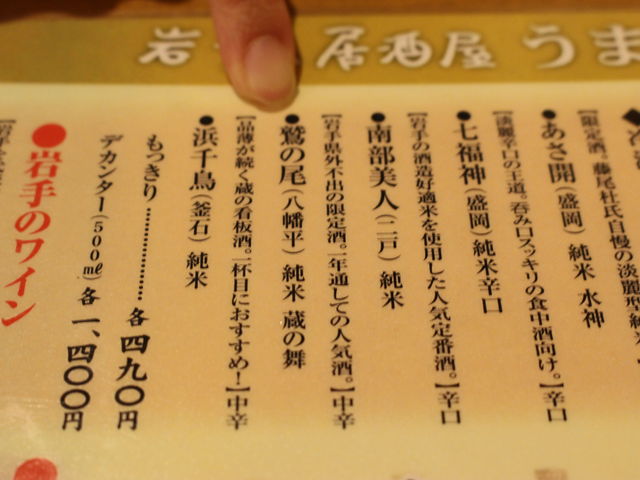 岩
居酒屋 うま
【限定酒。藤尾杜氏自慢の淡麗型純米
●あさ開(盛岡) 純米 水神
【淡麗辛口の王道。呑み口スッキリの食中酒向け。】辛口
●七福神(盛岡) 純米辛口
【岩手の酒造好適米を使用した人気定番酒。】辛口
●南部美人(二戸) 純米
【岩手県外不出の限定酒。一年通しての人気酒。】中辛
●鷲の尾(八幡平) 純米 蔵の舞
【品薄が続く蔵の看板酒。一杯目におすすめ!】中辛
●浜千鳥(釜石) 純米
もっきり………………各 四九〇円
デカンター(500㎖)各 一、四〇〇円
●岩手のワイン